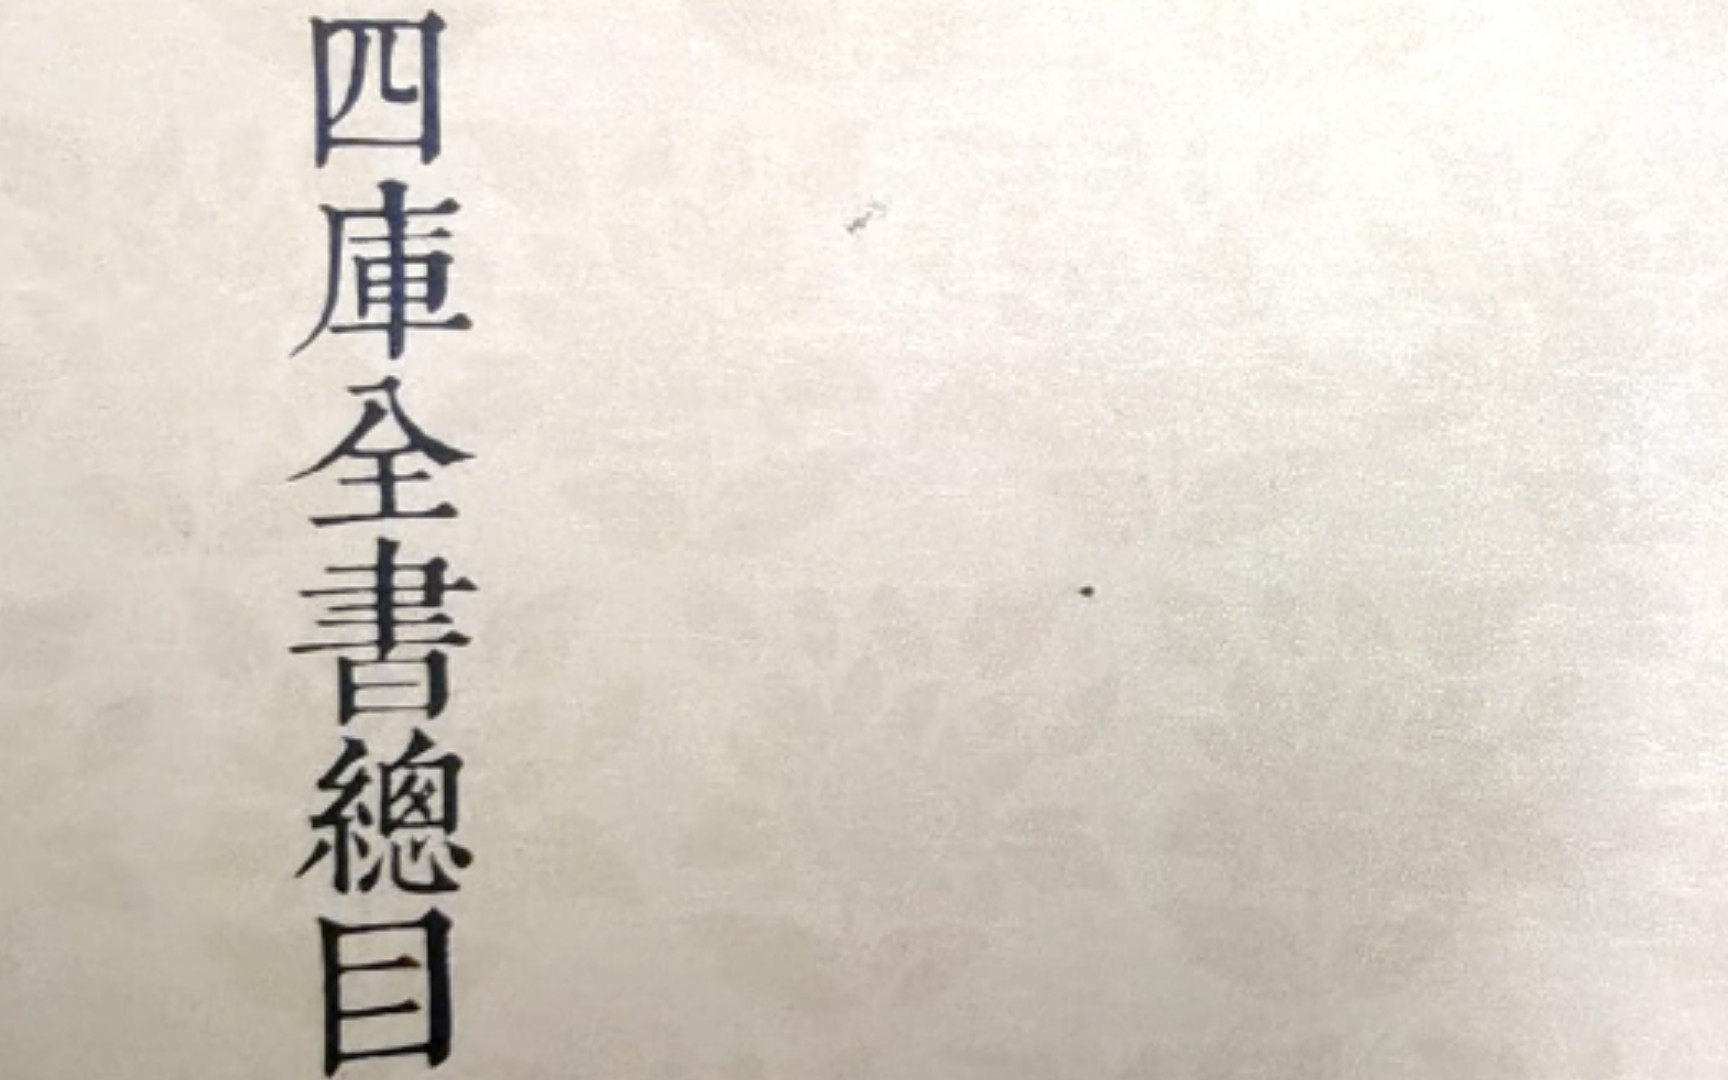 四庫全書總目